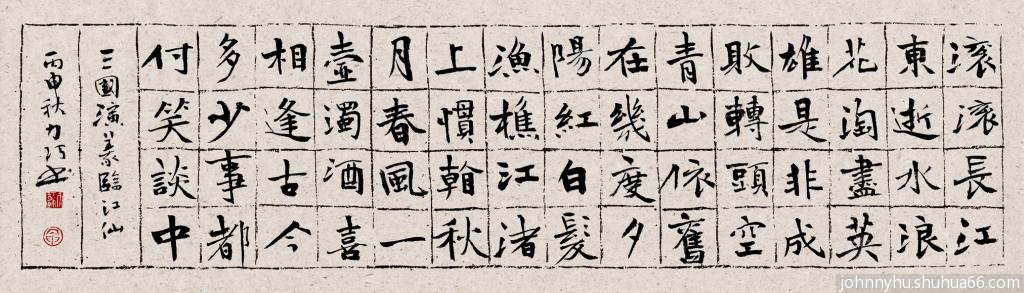 滚滚長江
東逝水浪
花淘盡英
雄是非成
敗轉頭空
青山依舊
在幾度夕
陽紅白髮
漁樵江渚
上慣翰秋
月春風一
壺濁酒喜
相逢古今
多少事都
付笑談中
三國演義臨江仙
丙申秋力
johnnyhu.shuhua66.com